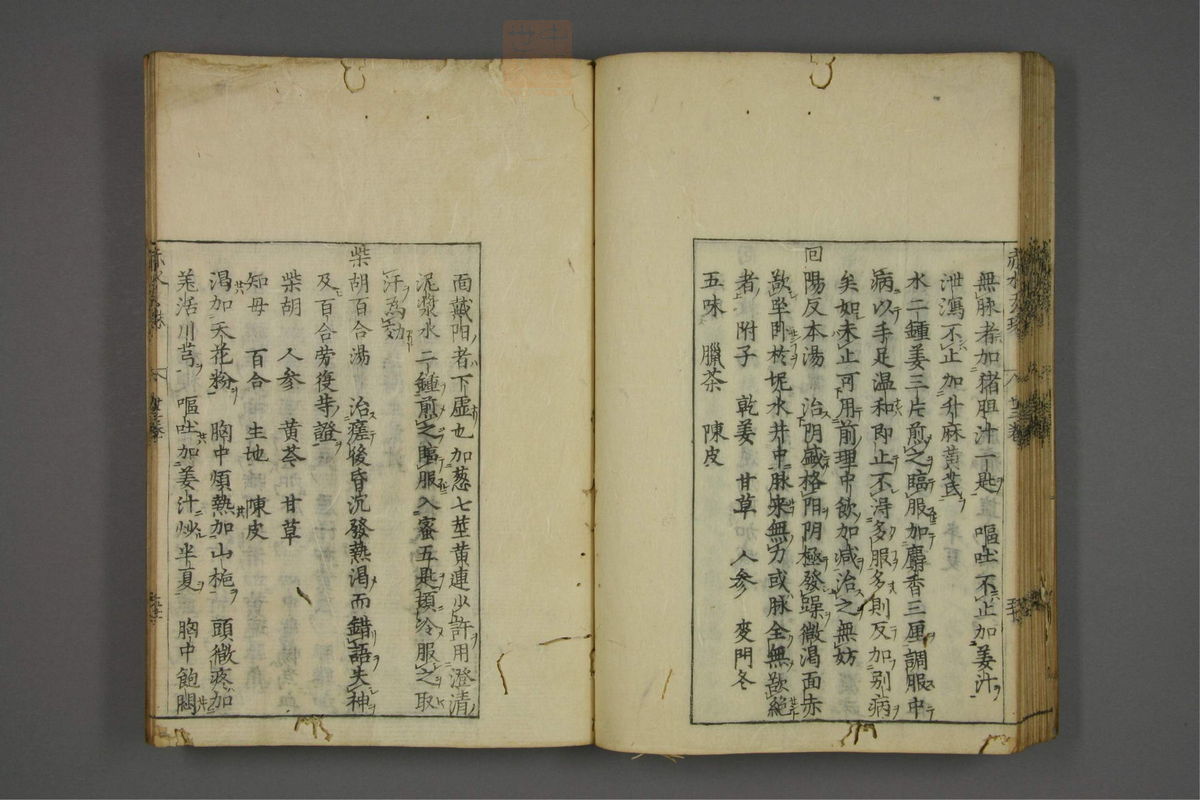 無脉者加猪胆汁一匙 嘔吐不止加姜汁
泄瀉不止加升麻黃芪
水二鍾姜三片煎之臨服加麝香三厘調服中
病以手足温和即止不淂多服多則反加别病
矣如未止可用前理中飲加减治之無妨
回陽反本湯 治阴盛格阳阴極發躁微渴面赤
欲坐卧於坭水井中脉来無力或脉全無欲絶
者 附子 乾姜 甘草 人参 麦門冬
五味 臘茶 陳皮
面戴阳者下虛也加葱七莖黄連少許用澄清
泥漿水二鍾煎之臨服入蜜五匙頓冷服之取
汗為効
柴胡百合湯 治瘥後昏沉發熱渴而錯語失神
及百合劳復䓁證
柴胡 人参 黄芩 甘草
知母 百合 生地 陳皮
渴加天花粉 胸中煩熱加山栀 頭微疼加
羗活川芎 嘔吐加姜汁炒半夏 胸中飽悶